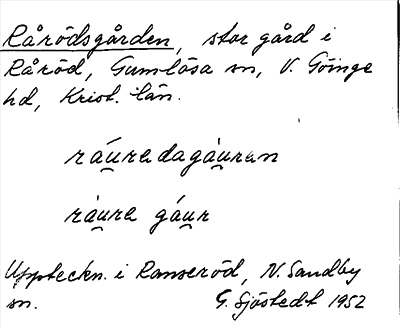 Rårödsgården, stor gård i
Råröd, Gumlösa sn, V. Göinge
hd, Krist. län.
ráu̯redagáu̯ren
ráu̯re gáu̯r
Uppteckn. i Ranseröd, N. Sandby
sn. G. Sjöstedt 1952